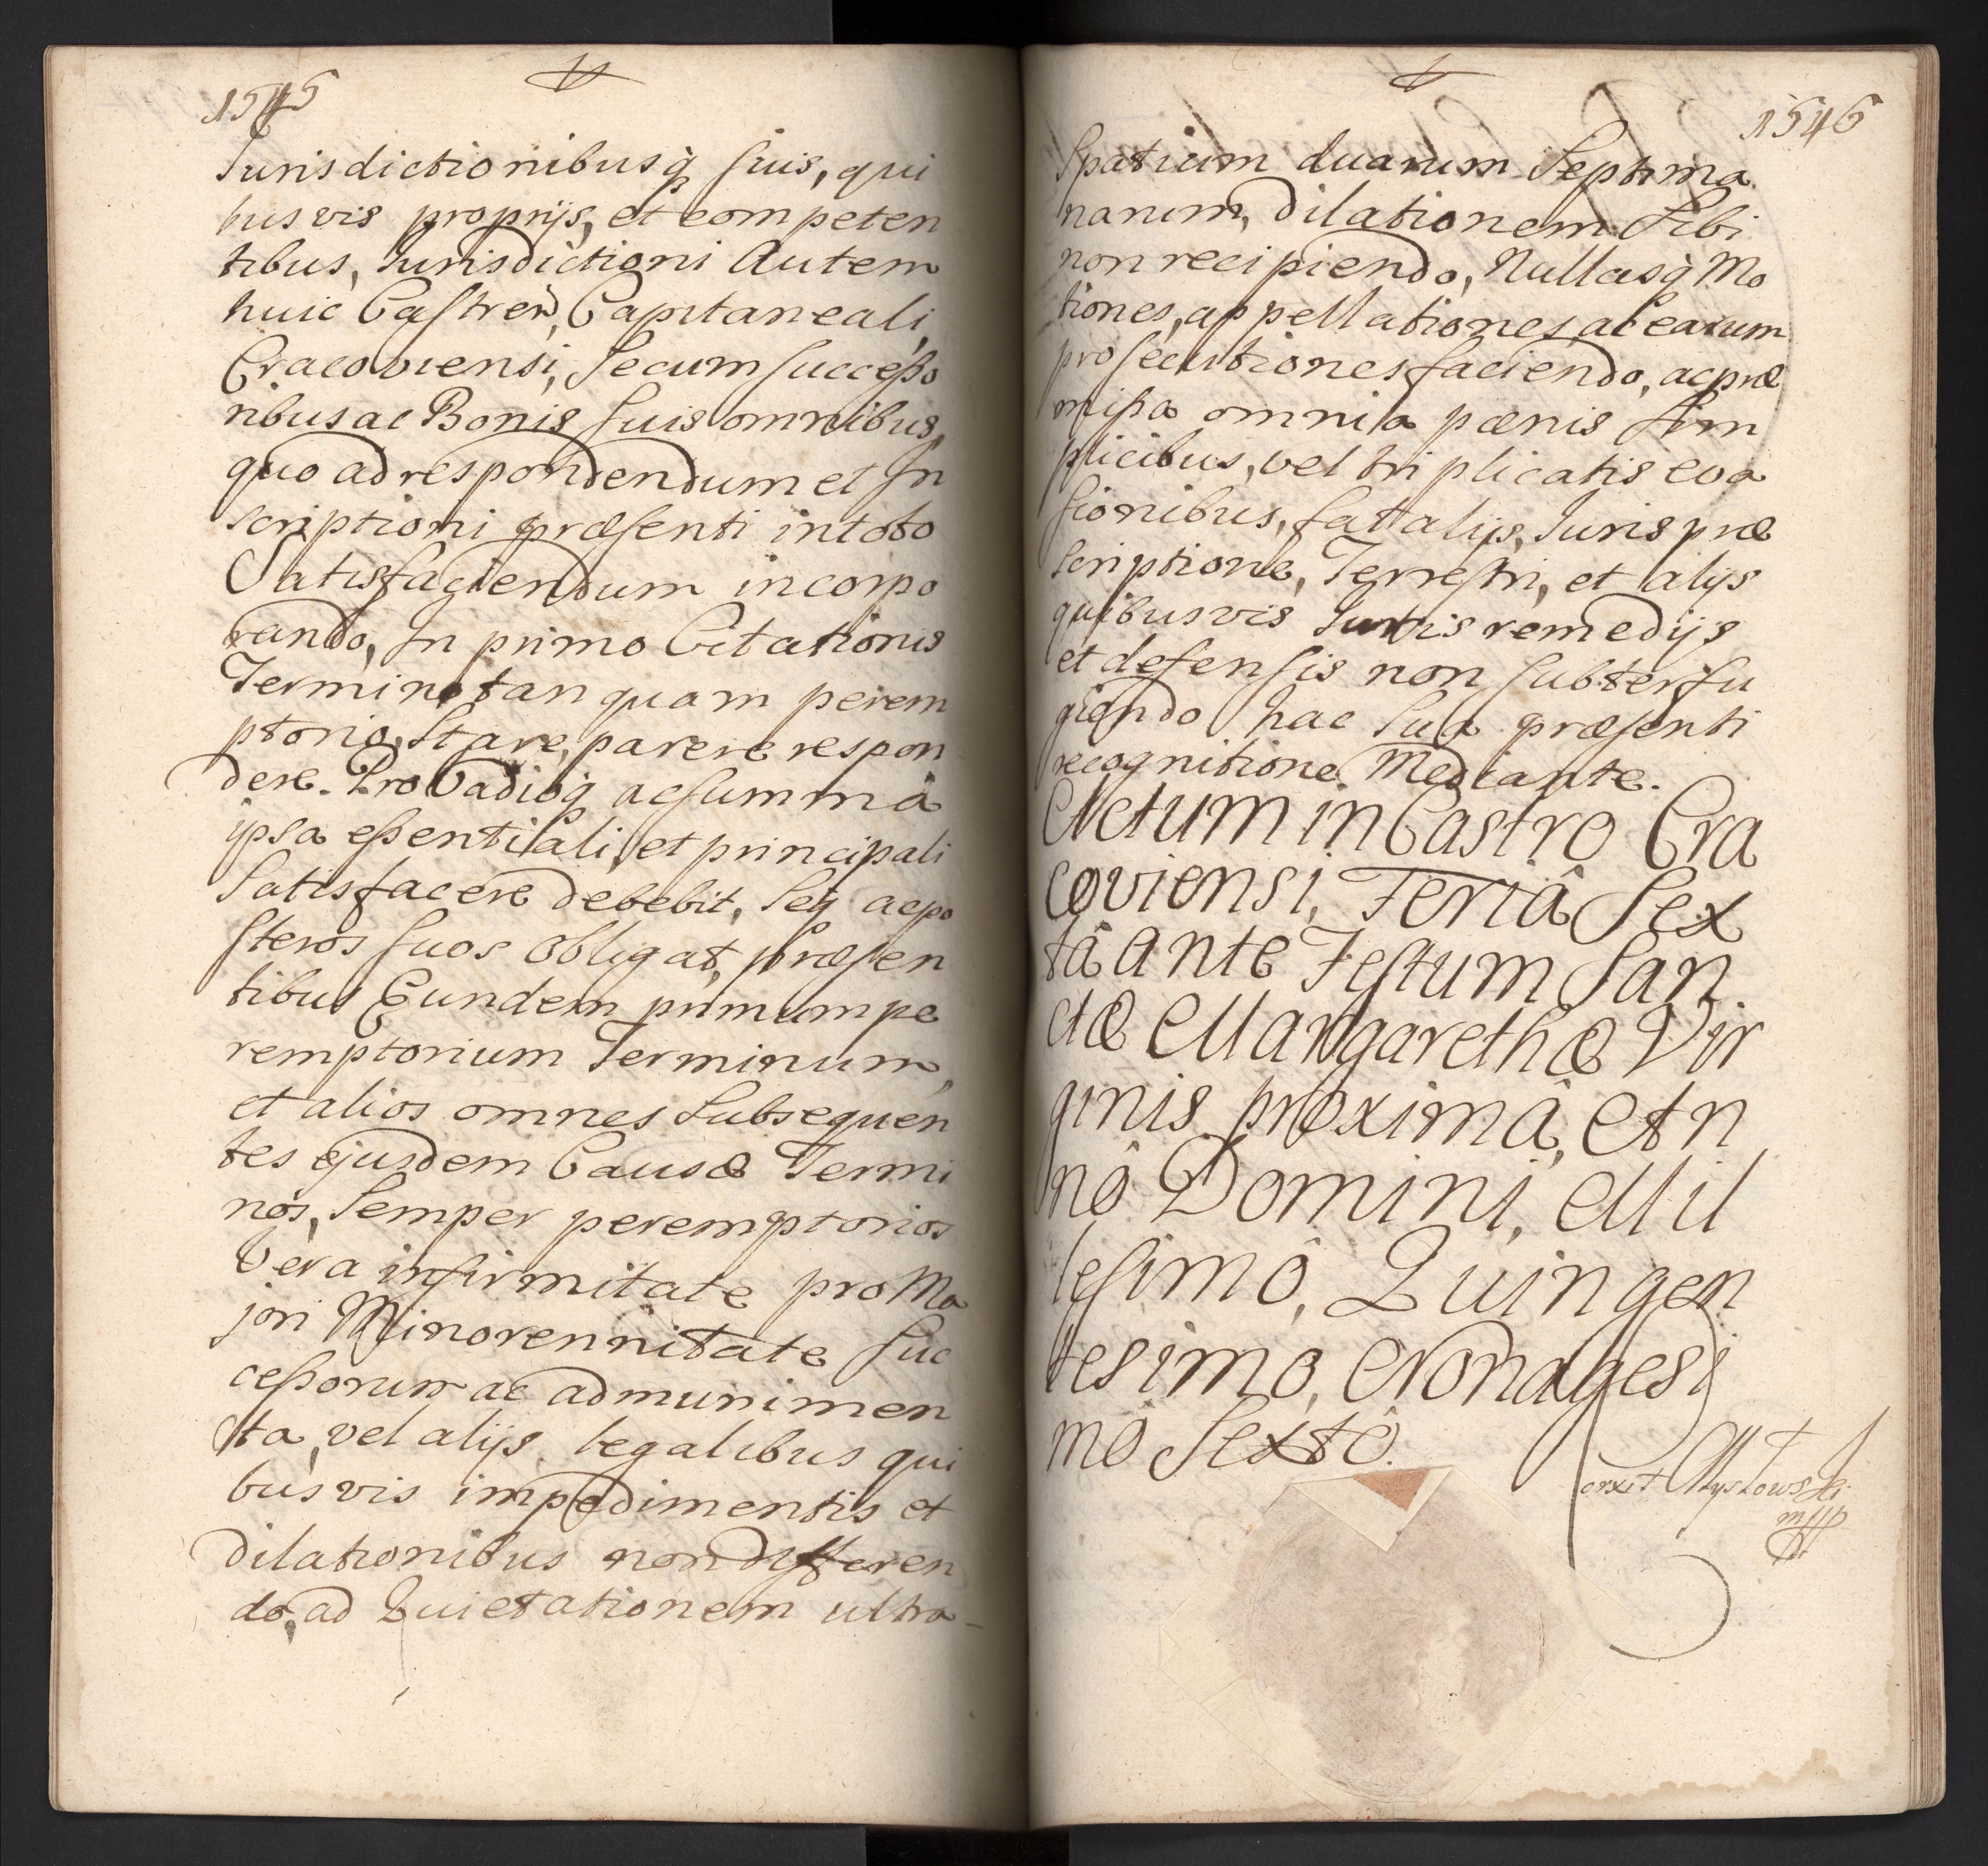 1545
Jurisdictionibusq̀ suis, qui
busvis proprijs, et competen
tibus, Jurisdictioni Autem
huic Castren, Capitaneali,
Cracoviensi, Secum successo
ribus ac Bonis suis omnibus,
quo ad respondendum et In
scriptioni præsenti in toto
Satisfaciendum incorpo
rando, In primo Citationis
Termino tanquam perem
ptorio, Stare, parere respon
dere. Pro Vadioq̀ ac summâ
ipsa essentiali, et principali
Satisfacere debebit, Seq̀ ac po
steros suos Obligat, præsen
tibus Eundem primum pe
remptorium Terminum,
et alios omnes Subsequen
tes ejusdem Causæ Termi
nos, Semper peremptorios
Vera infirmitate pro Ma
jori Minorennitate Suc
cessorum ac ad munimen
ta, vel alijs legalibus qui
busvis impedimentis et
dilationibus non differen
do, ad Quietationem ultra
1546
Spatium duarum Septima
narum, dilationem Sibi
non recipiendo, Nullasq̀ Mo
tiones, appellationes, ac earum
prosecutiones faciendo, ac præ
missa omnia pænis Sim
plicibus, vel triplicatis eva
sionibus, fatalijs, Juris præ
scriptione, Terrestri, et alijs
quibusvis Juris remedijs
et defensis non subterfu
giendo hac Sua præsenti
recognitione Mediante.
Actum in Castro Cra
coviensi, Feriâ Sex
tâ ante Festum San
ctæ Margarethæ Vir
ginis proximâ, An
nô Domini, Mil
lesimô, Quingen
tesimo, Nonagesi
mô Sextô.